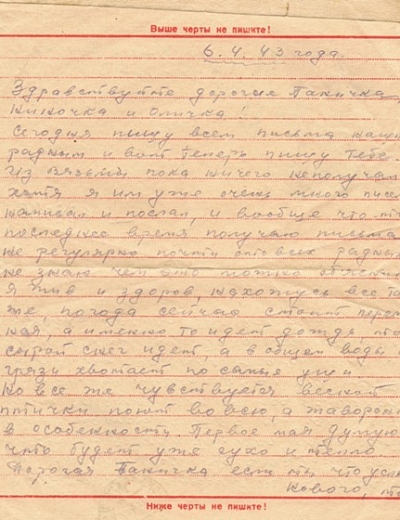 Выше черты не пишите!
6.4.43 года
Здравствуйте дорогие Паничка,
Ниночка и Оличка!
Сегодня пишу всем письма наши
радным и вот теперь пишу тебе.
Из Вязьмы пока ничего неполучам
хотя я им уже очень много писем
написал и послал, и вообще что то
последнее время получаю письма
не регулярно почти от всех радных
не знаю чем это можно объяснить
Я жив и здоров, нахожусь все там
же, погода сейчас стоит переме
ная, а именно то идет дождь, то
сырой снег идет, а в общем воды и
грязи хватает по самые уши
Но все же чувствуется весной
птички поют во всю, а жаворонки
в особенности. Первое мая думаю
что будет уже сухо и тепло.
Дорогая Паничка если ты что
нового, то
Ниже черты не пишите!